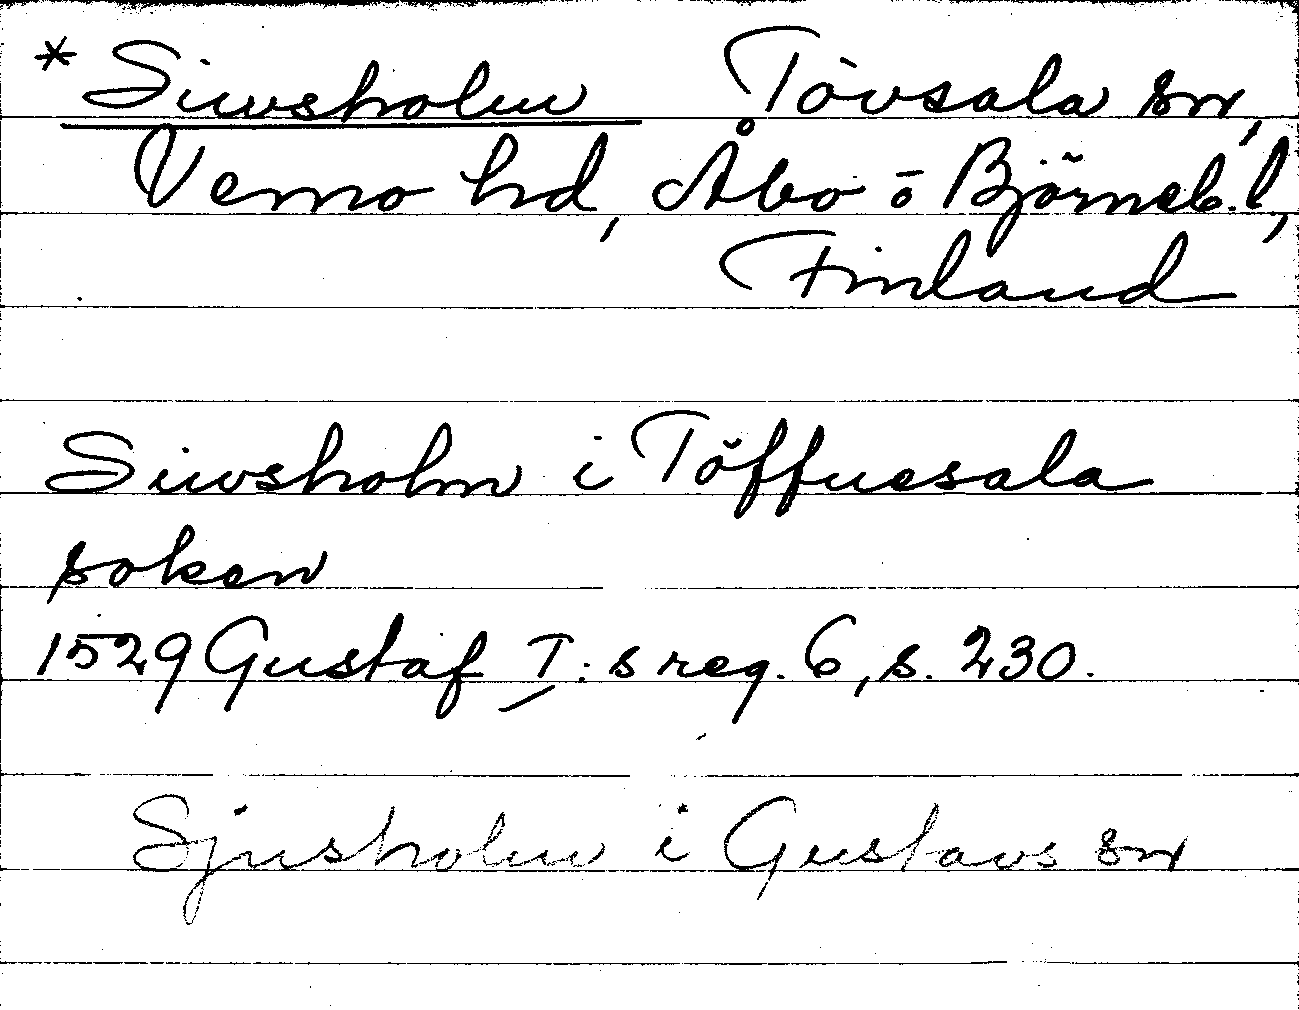 * Siwsholm Tövsala sn,
Vemo hd, Åbo o Björneb. l,
Finland
Siwsholm i Töffuesala
soken
1529 Gustaf I:s reg. 6, s. 230.
Sjusholm i Gustavs sn